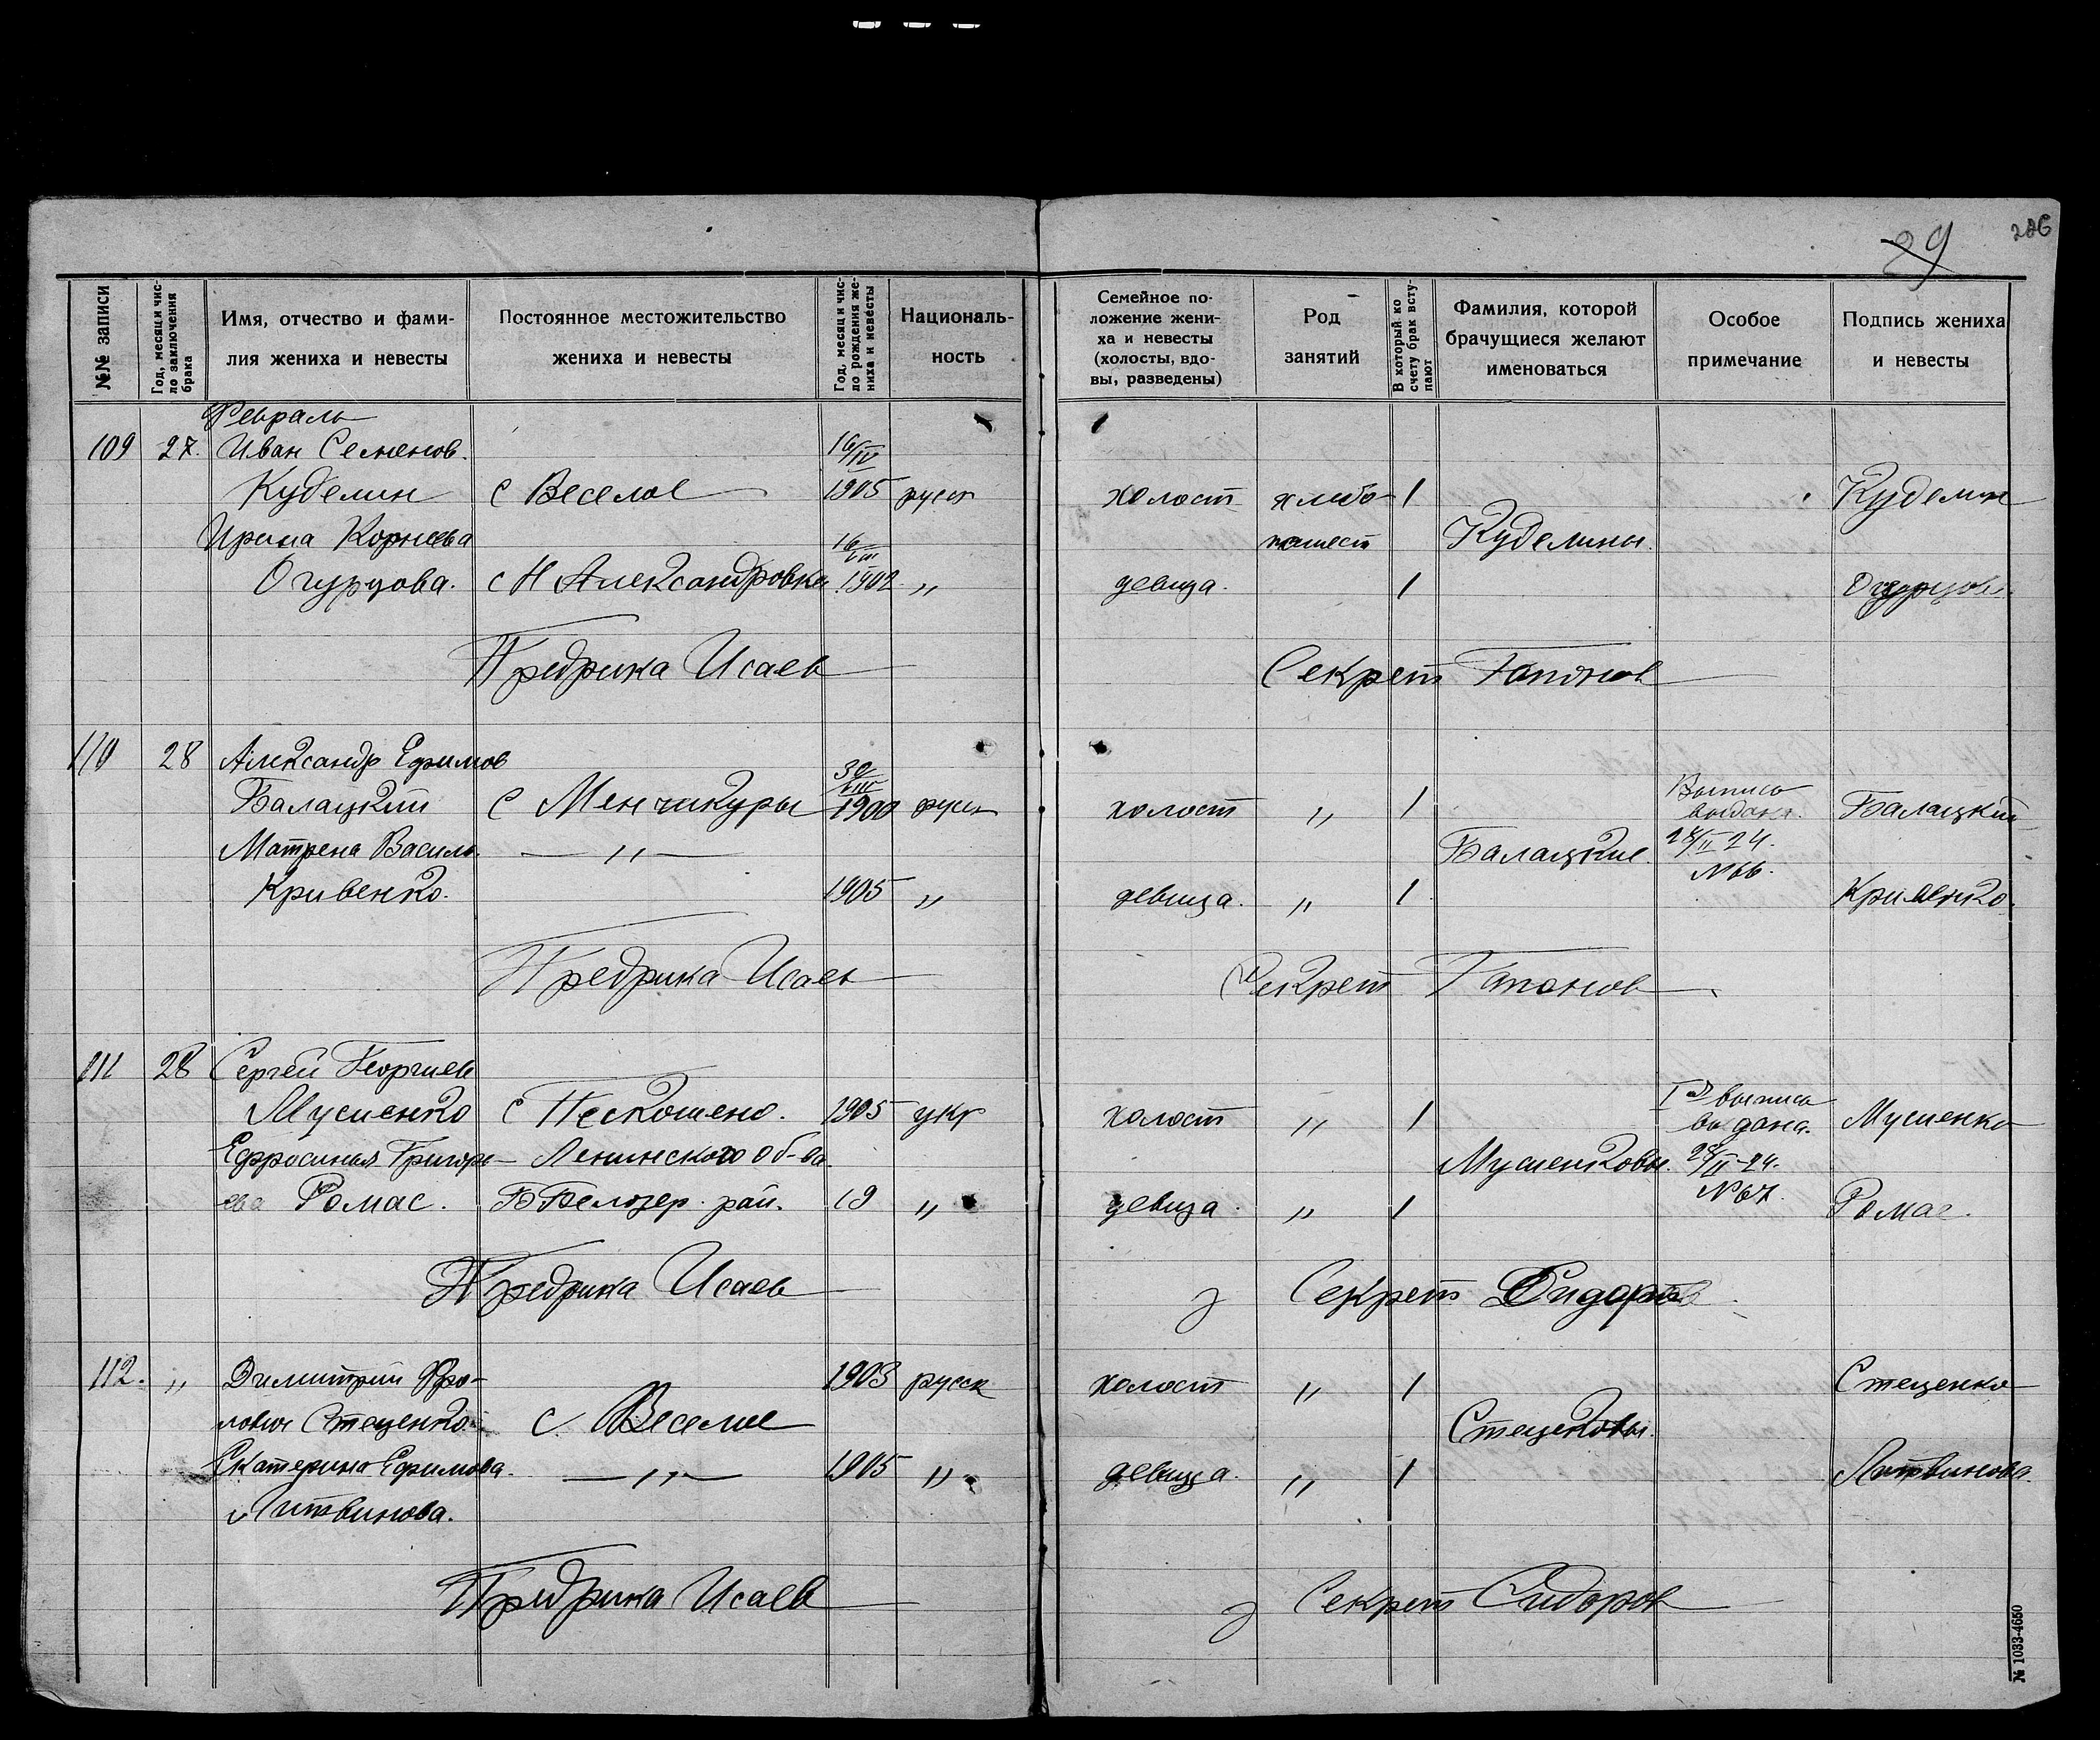 29
286
№№ записи
Год, месяц и число заключения брака
Имя, отчество и фами-
лия жениха и невесты
Постоянное местожительство
жениха и невесты
Год, месяц и чис-
ло рождения же-
ниха и невесты
Националь-
ность
Семейное по-
ложение жени-
ха и невесты
(холосты, вдо-
вы, разведены)
Род
занятий
В который по
счету брак всту-
пают
Фамилия, которой
брачущиеся желают
именоваться
Особое
примечание
Подпись жениха
и невесты
Февраль
109 27. Иван Семенов. 16/IV
Куделин с Веселое 1905 русск холост хлебо- 1 Куделин
Ирина Корнеева 16 пашест Куделины.
Огурцова. с Н Александровка 1902 „ девица. 1 Огурцова
Предрика Исаев Секрет Гапонов
110 28 Александр Ефимов 30/VIII
Балацкий с Менчикуры 1900 русск холост „ 1 Выпись выдана. Балацкий
Матрена Василь. — „ — Балацкие. 28/II 24.
Кривенко. 1905 „ девица. „ 1 № 66. Кривенко.
Предрика Исаев Секрет Гапонов
111 28 Сергей Георгиев
Мусиенко с Пескошено. 1905 укр холост „ 1 выпись выдана. Мусиенко
Ефросиния Григорь- Ленинского об-ва. Мусиенковы. 28/II-24.
ева Ромас. Б Белозер. рай. 19 „ девица. „ 1 № 67. Ромас.
Предрика Исаев Секрет Сидоров
112. „ Димитрий Фро- 1903 русск холост „ 1 Стеценко
лович Стеценко. с. Веселое Стеценковы.
Екатерина Ефимова. — „ — 1905 „ девица. „ 1 Литвинова.
Литвинова.
Предрика Исаев Секрет Сидоров
№ 1033-4650